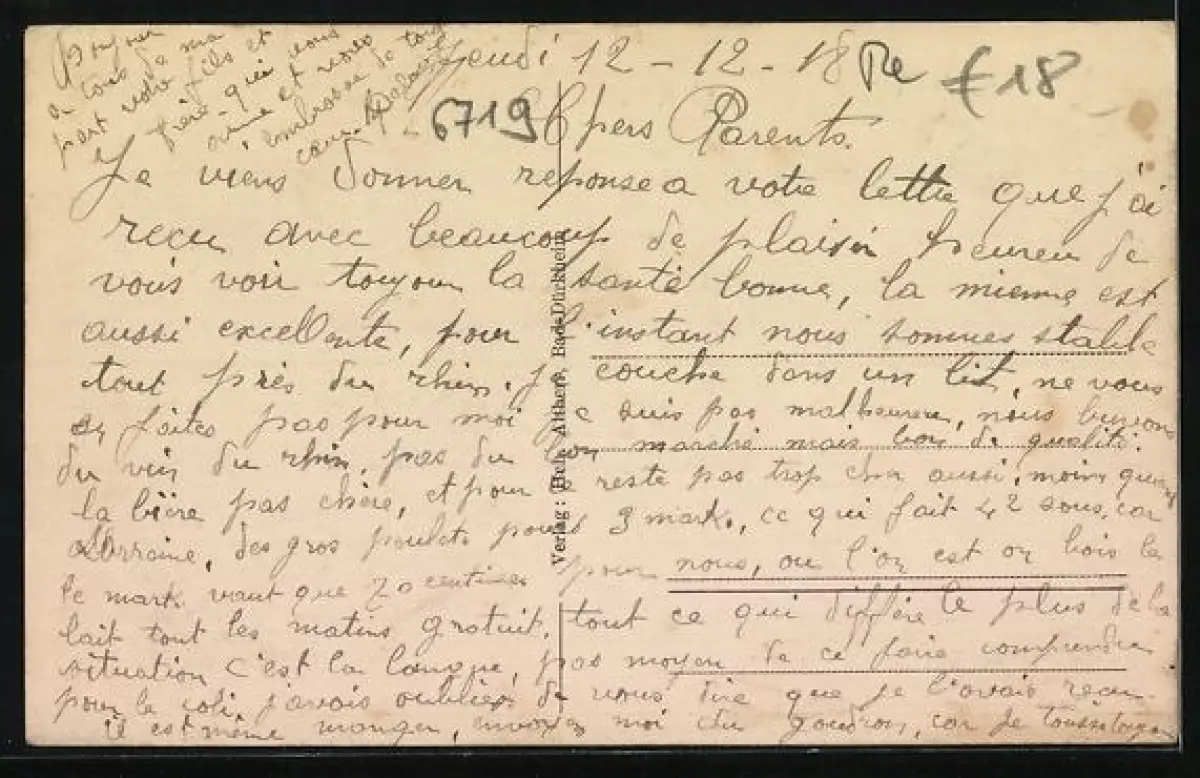 Bonjour
a tous de ma
part votre fils et
frère qui vous
aime et vous
embrasse de tout
cœur.
Jeudi 12-12-18 Re £18
6719 Chers Parents.
Je viens donner reponse a votre lettre que j'ai
recu avec beaucoup de plaisir heureu de
vous voir toujour la santé bonne, la mienne est
aussi excellente, pour l'instant nous sommes stable
tout près du rhin. je couche dans un lit, ne vous
en faites pas pour moi je suis pas malheureu, nous buvons
du vin du rhin, pas du bon marché mais bon de qualité.
la bière pas chère, et pour le reste pas trop cher aussi, moins qu'en
Lorraine, des gros poulets pour 3 mark, ce qui fait 42 sous, car
le mark vaut que 70 centimes pour nous, ou l'on est on bois le
lait tout les matins gratuit, tout ce qui diffère le plus de la
situation c'est la langue, pas moyen de ce faire comprendre
pour le coli, j'avais oublier de vous dire que je l'avais recu.
il est même manger, envoyer moi du goudron, car je tousse toujour
Verlag: Althers, Bad-Dürkheim